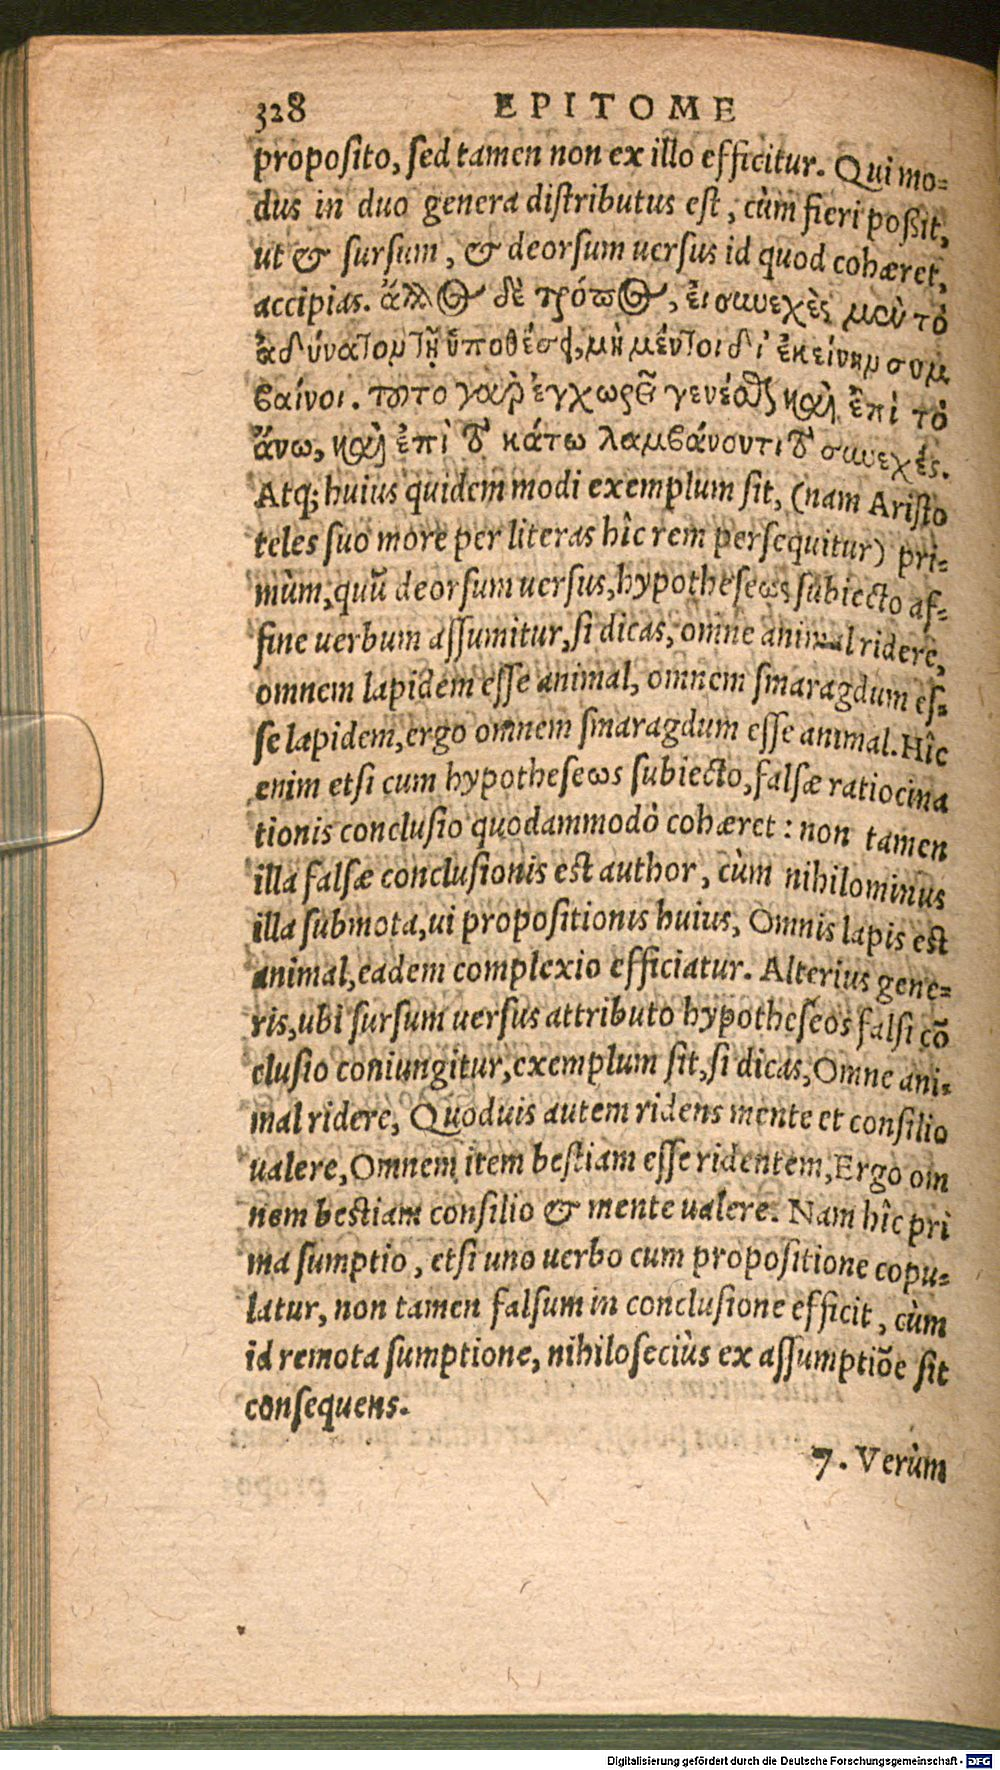 328 EPITOME
proposito, sed tamen non ex illo efficitur. Qui mo-
dus in duo genera distributus est, cùm fieri possit,
ut & sursum, & deorsum uersus id quod cohæret,
accipias. ἄλλος δὲ τρόπος, εἰ συνεχὲς μὲν τὸ
ἀδύνατον τῇ ὑποθέσει, μὴ μέντοι δι' ἐκείνην συμ
βαίνοι. τοῦτο γὰρ ἐγχωρεῖ γενέσθαι καὶ ἐπὶ τὸ
ἄνω, καὶ ἐπὶ τὸ κάτω λαμβάνοντι τὸ συνεχές.
Atq; huius quidem modi exemplum sit, (nam Aristo
teles suo more per literas hîc rem persequitur) pri-
mùm, quũ deorsum uersus, hypotheseως subiecto af-
fine uerbum assumitur, si dicas, omne animal ridere,
omnem lapidem esse animal, omnem smaragdum es-
se lapidem, ergo omnem smaragdum esse animal. Hîc
enim etsi cum hypotheseωs subiecto, falsæ ratiocina
tionis conclusio quodammodò cohæret: non tamen
illa falsæ conclusionis est author, cùm nihilominus
illa submota, ui propositionis huius, Omnis lapis est
animal, eadem complexio efficiatur. Alterius gene-
ris, ubi sursum uersus attributo hypotheseos falsi cõ
clusio coniungitur, exemplum sit, si dicas, Omne ani-
mal ridere, Quoduis autem ridens mente et consilio
ualere, Omnem item bestiam esse ridentem, Ergo om
nem bestiam consilio & mente ualere. Nam hîc pri
ma sumptio, etsi uno uerbo cum propositione copu-
latur, non tamen falsum in conclusione efficit, cùm
id remota sumptione, nihilo seciùs ex assumptiõe sit
consequens.
7. Verùm
Digitalisierung gefördert durch die Deutsche Forschungsgemeinschaft - DFG